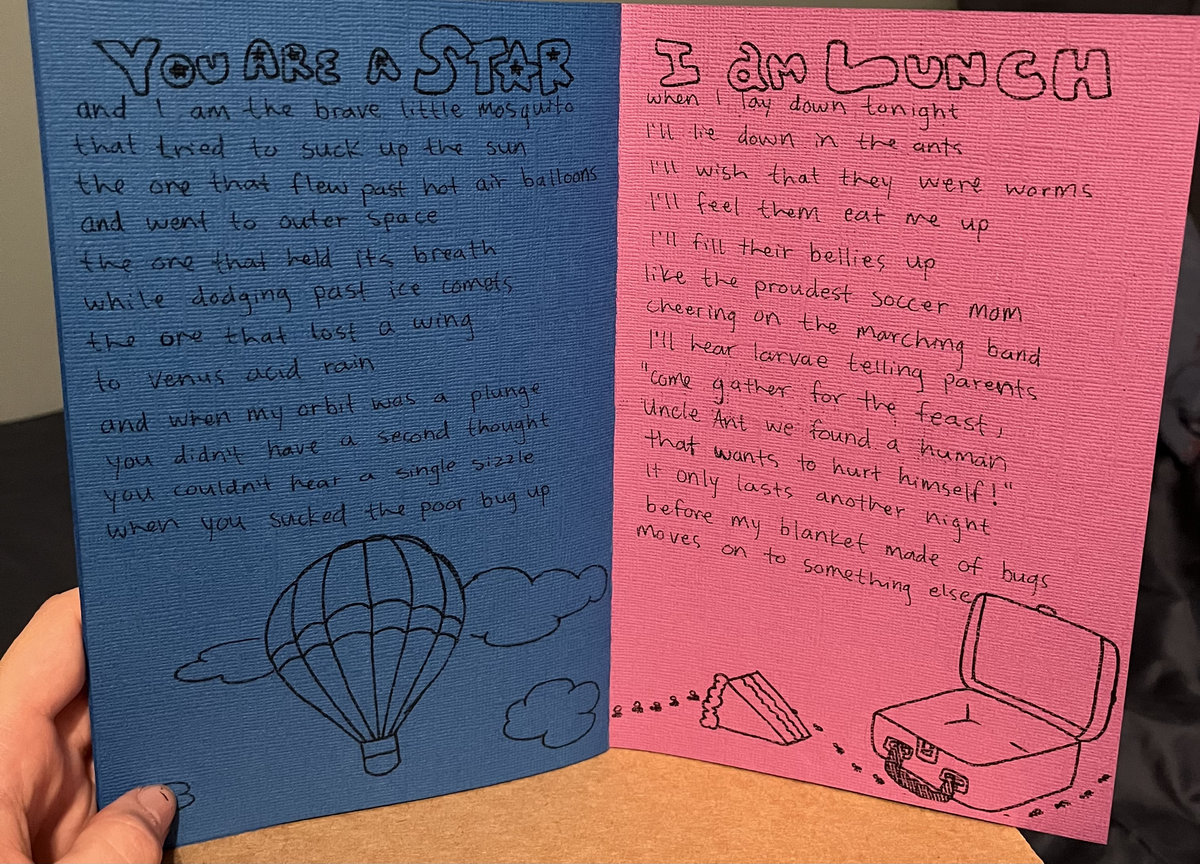 YOU ARE A STAR
and I am the brave little mosquito
that tried to suck up the sun
the one that flew past hot air balloons
and went to outer space
the one that held its breath
while dodging past ice comets
the one that lost a wing
to Venus acid rain
and when my orbit was a plunge
you didn't have a second thought
you couldn't hear a single sizzle
when you sucked the poor bug up
I am LUNCH
when I lay down tonight
I'll lie down in the ants
I'll wish that they were worms
I'll feel them eat me up
I'll fill their bellies up
like the proudest soccer mom
cheering on the marching band
I'll hear larvae telling parents
"come gather for the feast,
Uncle Ant we found a human
that wants to hurt himself!"
it only lasts another night
before my blanket made of bugs
moves on to something else